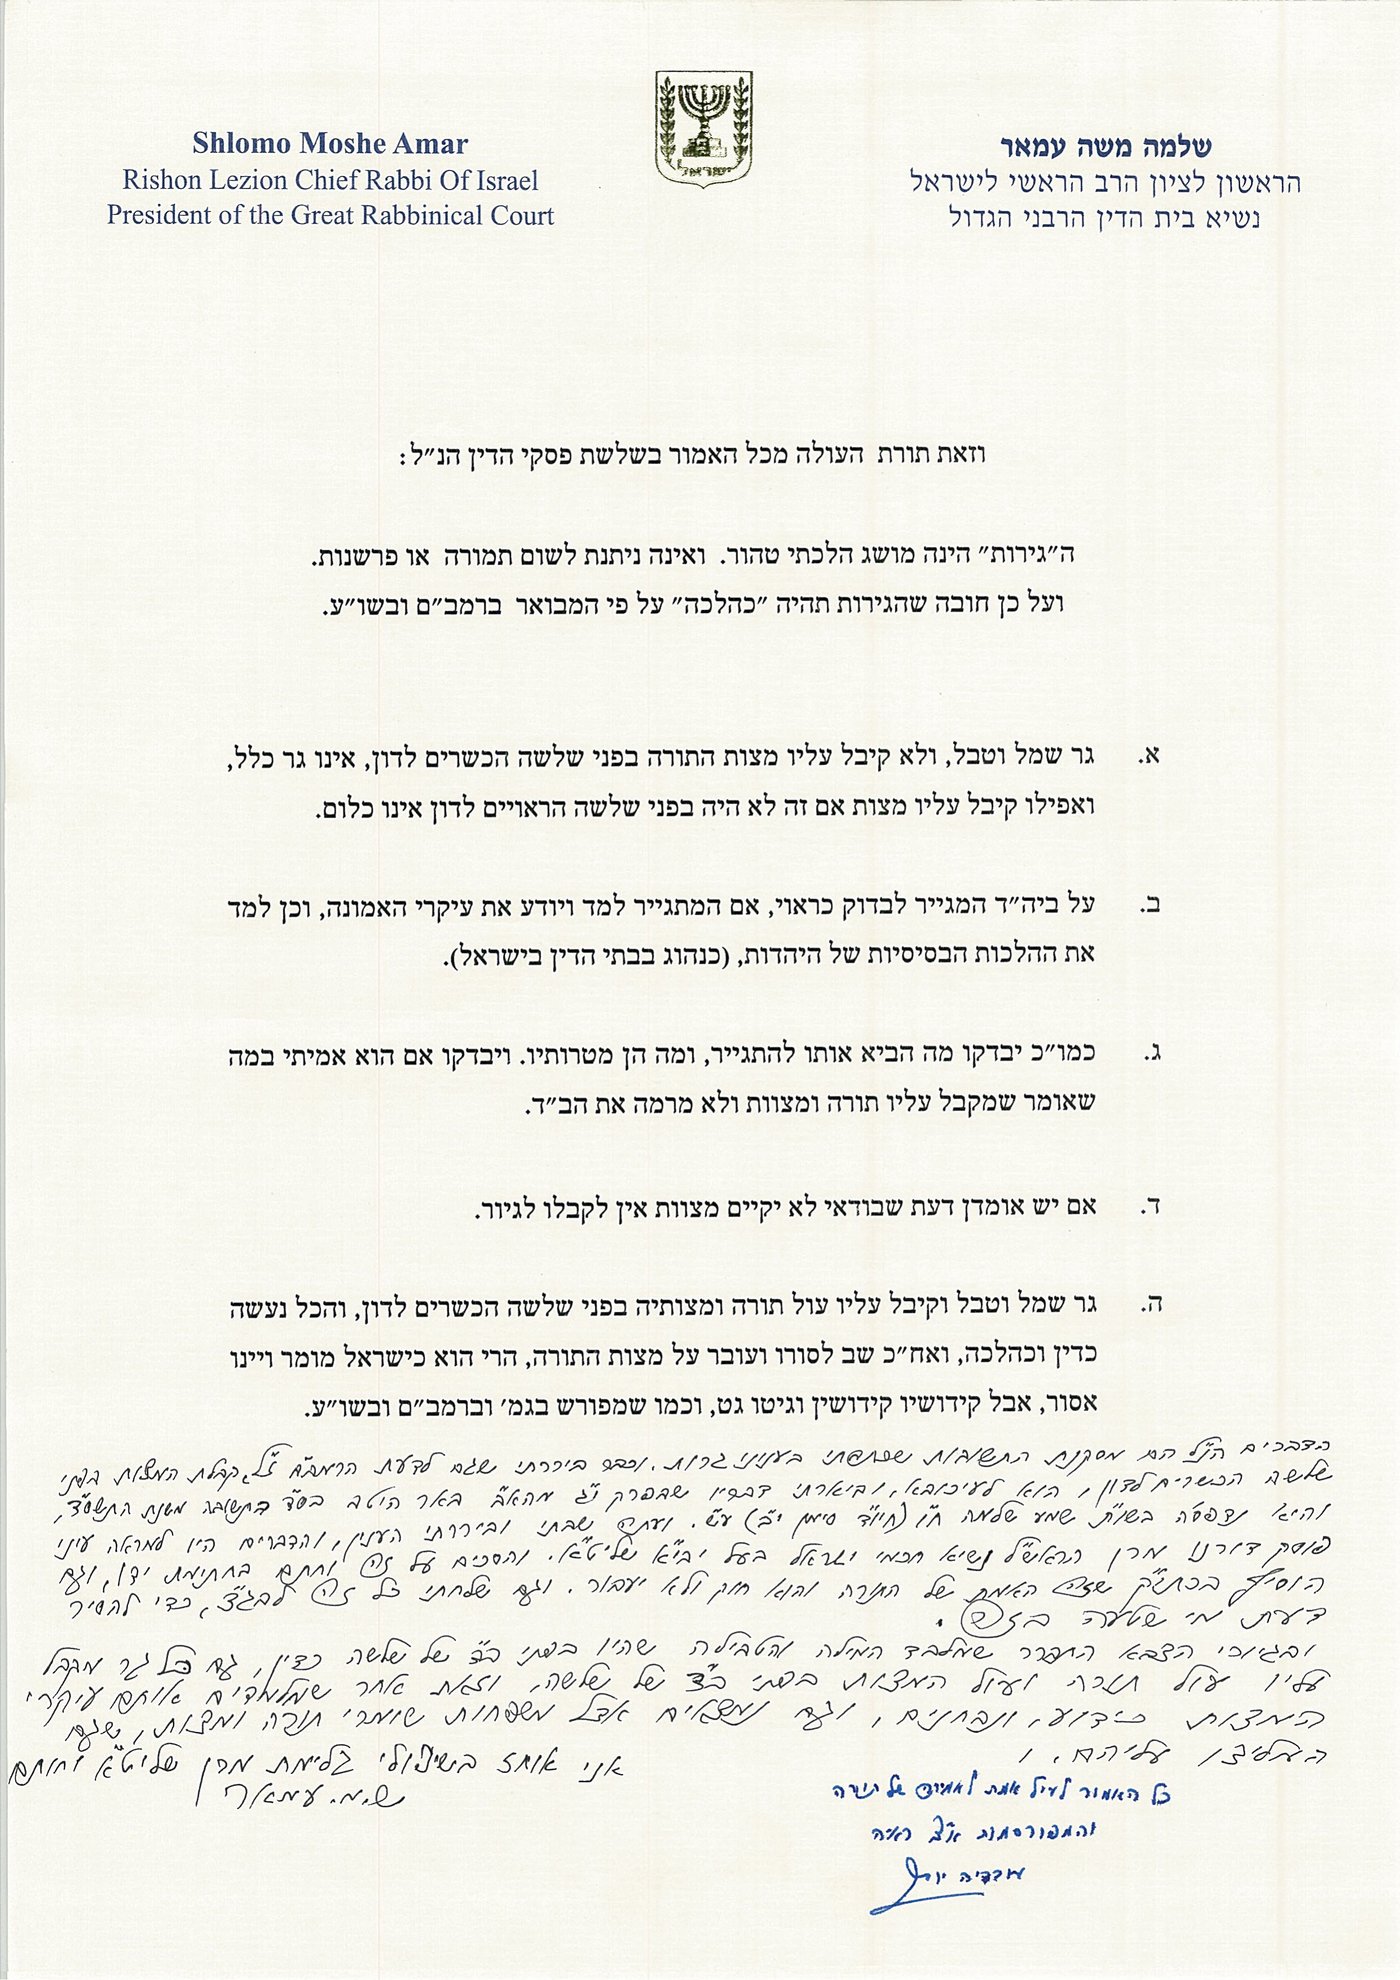 שלמה משה עמאר
הראשון לציון הרב הראשי לישראל
נשיא בית הדין הרבני הגדול
Shlomo Moshe Amar
Rishon Lezion Chief Rabbi Of Israel
President of the Great Rabbinical Court
ישראל
וזאת תורת העולה מכל האמור בשלשת פסקי הדין הנ״ל:
ה״גירות״ הינה מושג הלכתי טהור. ואינה ניתנת לשום תמורה או פרשנות.
ועל כן חובה שהגירות תהיה ״כהלכה״ על פי המבואר ברמב״ם ובשו״ע.
א. גר שמל וטבל, ולא קיבל עליו מצות התורה בפני שלשה הכשרים לדון, אינו גר כלל,
ואפילו קיבל עליו מצות אם זה לא היה בפני שלשה הראויים לדון אינו כלום.
ב. על ביה״ד המגייר לבדוק כראוי, אם המתגייר למד ויודע את עיקרי האמונה, וכן למד
את ההלכות הבסיסיות של היהדות, (כנהוג בבתי הדין בישראל).
ג. כמו״כ יבדקו מה הביא אותו להתגייר, ומה הן מטרותיו. ויבדקו אם הוא אמיתי במה
שאומר שמקבל עליו תורה ומצוות ולא מרמה את הב״ד.
ד. אם יש אומדן דעת שבודאי לא יקיים מצוות אין לקבלו לגיור.
ה. גר שמל וטבל וקיבל עליו עול תורה ומצותיה בפני שלשה הכשרים לדון, והכל נעשה
כדין וכהלכה, ואח״כ שב לסורו ועובר על מצות התורה, הרי הוא כישראל מומר ויינו
אסור, אבל קידושיו קידושין וגיטו גט, וכמו שמפורש בגמ׳ וברמב״ם ובשו״ע.
הדברים הנ״ל הם מסקנת התשובות שכתבתי בעניני גרות. וכבר ביררתי שגם לדעת הרמב״ם ז״ל, קבלת המצות בפני
שלשה הכשרים לדון, הוא לעיכובא, וביארתי דבריו שבפרק י״ג מהא״ב באר היטב בס״ד בתשובה משנת התשס״ד,
והיא נדפסה בשו״ת שמע שלמה ח״ו (חיו״ד סימן י״ב) עש״. ועתה שבתי וביררתי הענין, והדברים היו למראה עיני
פוסק דורנו מרן הראש״ל נשיא חכמי ישראל בעל יבי״א שליט״א. והסכים על זה וחתם בחתימת ידו, וגם
הוסיף בכת״ק שזה האמת של התורה והוא חוק ולא יעבור. וגם שלחתי כל זה לבג״צ, כדי להסיר
דעת מי שטעה בזה.
ובגיורי הצבא התברר שמלבד המילה והטבילה שהיו בפני ב״ד של שלשה כדין, גם כל גר מקבל
עליו עול תורה ועול המצות בפני ב״ד של שלשה, וזאת אחר שמלמדים אותם עיקרי
המצות כידוע, ונבחנים, וגם נמצאים אצל משפחות שומרי תורה ומצות, שגם
המליצו עליהם. ו
אני אוחז בשיפולי גלימת מרן שליט״א וחותם
ש.מ. עמאר
כל האמור לעיל אמת לאמיתה של תורה
והמפורסמות א״צ ראיה
עובדיה יוסף